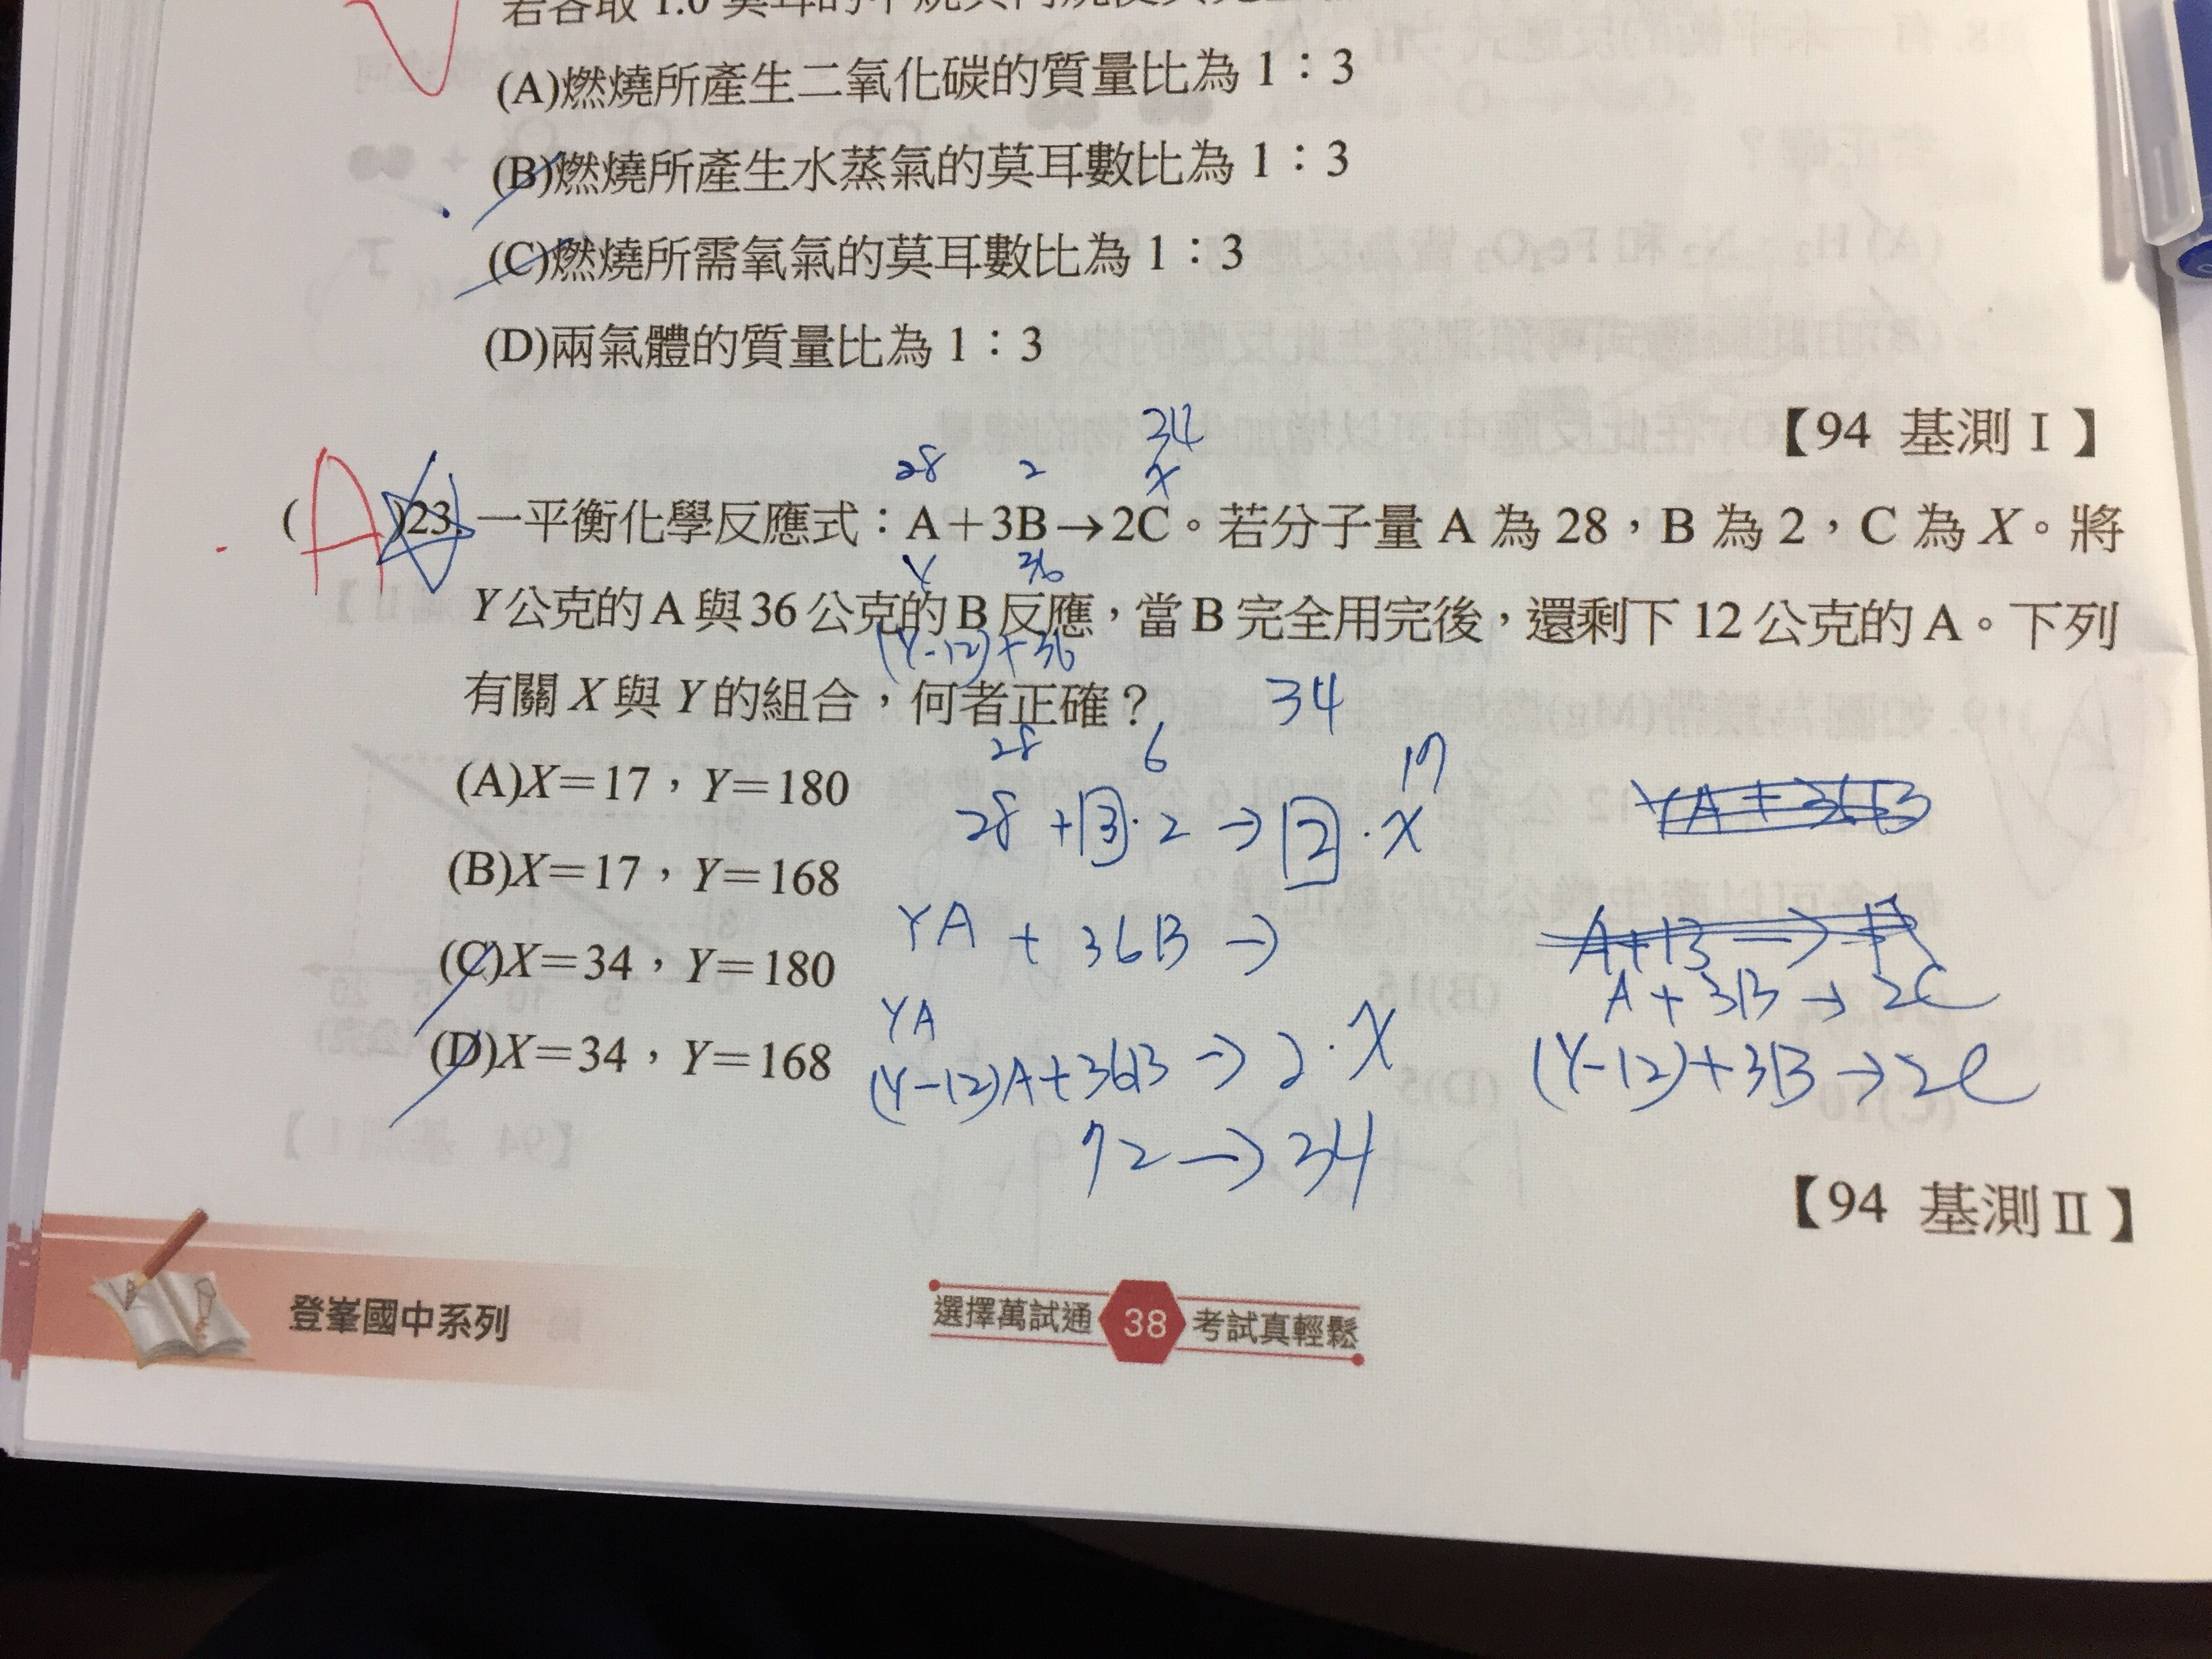 若各取 1.0 莫耳的
(A)燃燒所產生二氧化碳的質量比為 1：3
(B)燃燒所產生水蒸氣的莫耳數比為 1：3
(C)燃燒所需氧氣的莫耳數比為 1：3
(D)兩氣體的質量比為 1：3
【94 基測 I 】
34
28 2 X
( A )23. 一平衡化學反應式：A＋3B→2C。若分子量 A 為 28，B 為 2，C 為 X。將
Y 36
Y公克的 A 與 36 公克的 B 反應，當 B 完全用完後，還剩下 12 公克的 A。下列
(Y-12)+36
有關 X 與 Y 的組合，何者正確？ 34
28 6 17
(A)X＝17，Y＝180
28 + 3·2 → 2·X
YA + 36B
(B)X＝17，Y＝168
YA + 36B →
A+B →
(C)X＝34，Y＝180
A + 3B → 2C
YA
(D)X＝34，Y＝168
(Y-12)A+36B → 2·X
(Y-12)+3B→2C
72 → 34
【94 基測 II 】
登峯國中系列
選擇萬試通 38 考試真輕鬆